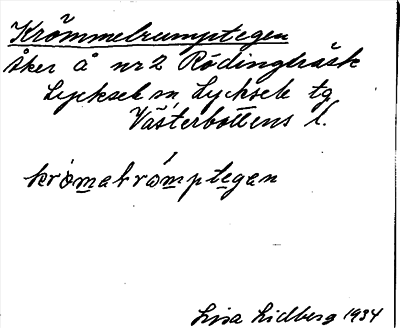 Krömmelrumptegen
åker å nr 2 Rödingträsk
Lycksele sn Lycksele tg
Västerbottens l.
krömalrömptegan
Lisa Lidberg 1934